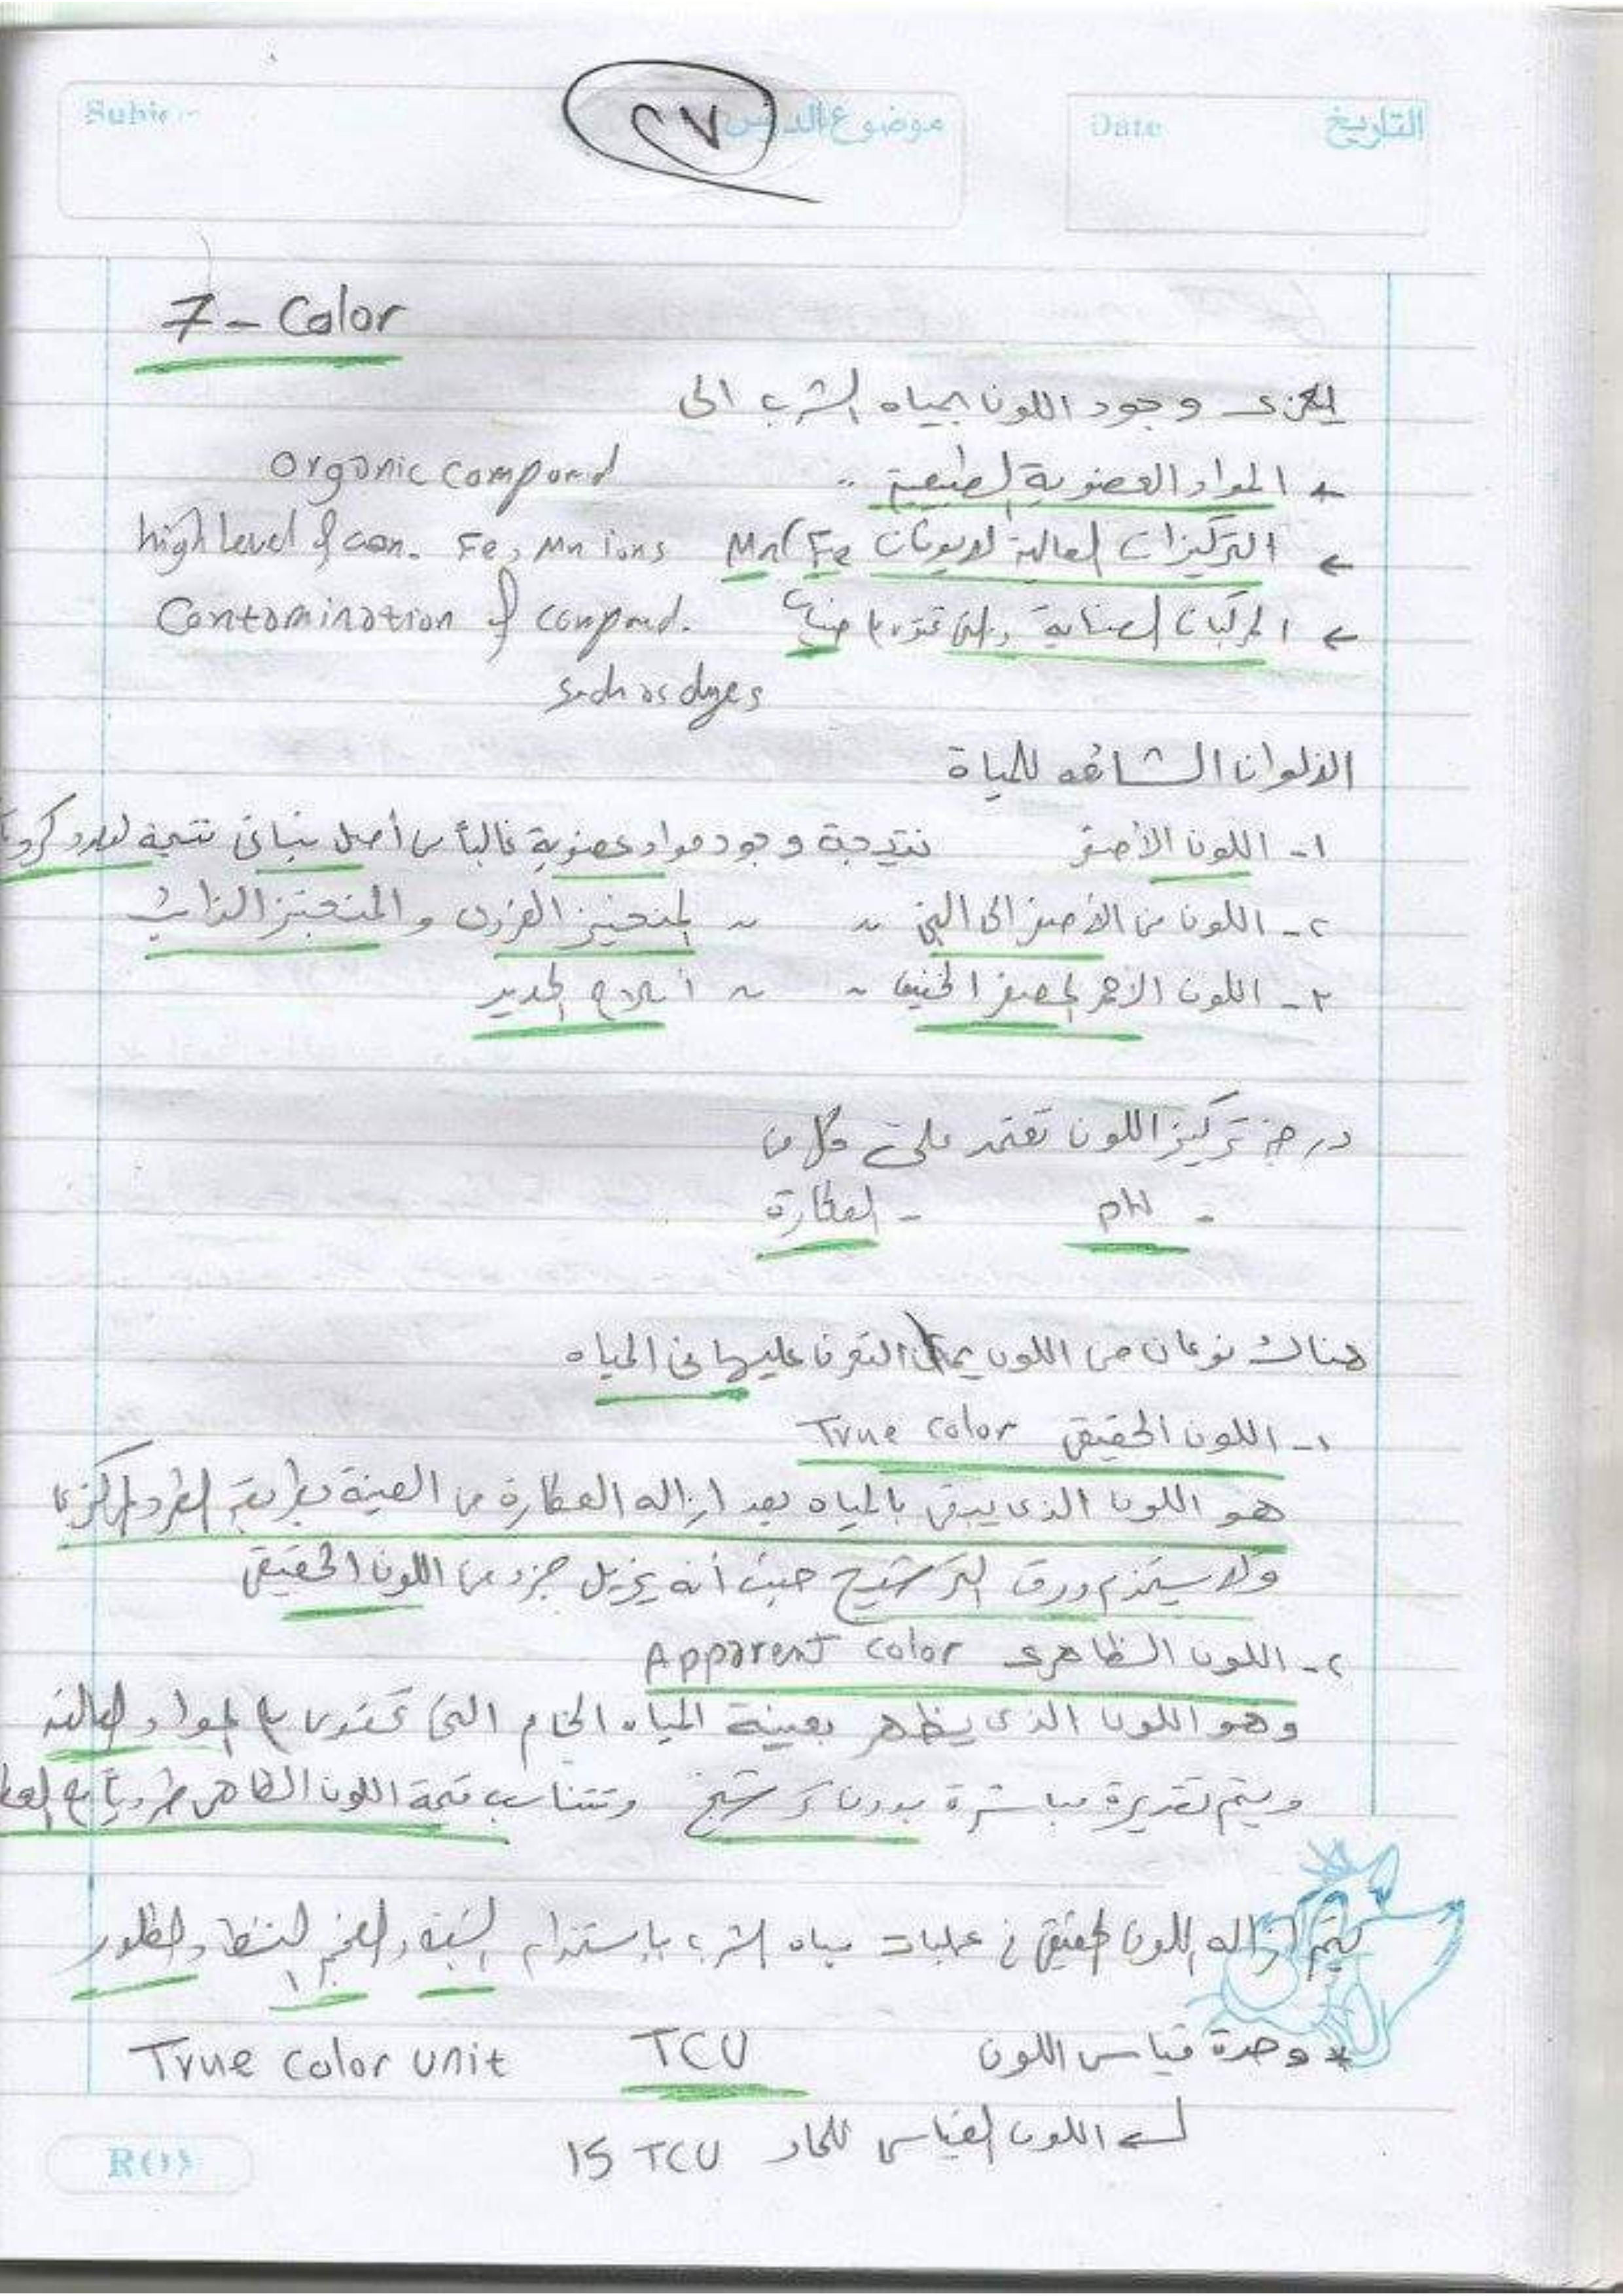 التاريخ Date
موضوع الدرس
٢٧
7 - Color
يعزى وجود اللون بمياه الشرب الى
← المواد العضوية الطبيعية .. Organic compound
← التركيزات العالية لايونات Mn, Fe high level of con. Fe, Mn ions
← المركبات الصناعية والتى تحتوى على صبغات Contamination of compound.
such as dyes
الألوان الشائعه للمياة
١- اللون الأصفر نتيجة وجود مواد عضوية غالباً من أصل نباتى نتيجه
٢- اللون من الأصفر الى البنى " " المنجنيز الغروى والمنجنيز الذائب
٣- اللون الاحمر المصفر الخفيف " " أملاح الحديد
درجة تركيز اللون تعتمد على كل من
- pH - العكارة
هناك نوعان من اللون يمكن التعرف عليها فى المياه
١- اللون الحقيقى True color
هو اللون الذى يبقى بالمياه بعد ازاله العكارة من العينة بطريقة الطرد المركزى
ولا يستخدم ورق الترشيح حيث أنه يزيل جزء من اللون الحقيقى
٢- اللون الظاهرى Apparent color
وهو اللون الذى يظهر بعينة المياه الخام التى تحتوى على المواد العالقة
ويتم تقديرة مباشرة بدون ترشيح وتتناسب قيمة اللون الظاهرى طردياً مع
يتم ازاله اللون الحقيقى فى عمليات مياه الشرب بإستخدام الشبه والفحم النشط والكلور
* وحدة قياس اللون TCU True color unit
اللون القياسى للماء 15 TCU